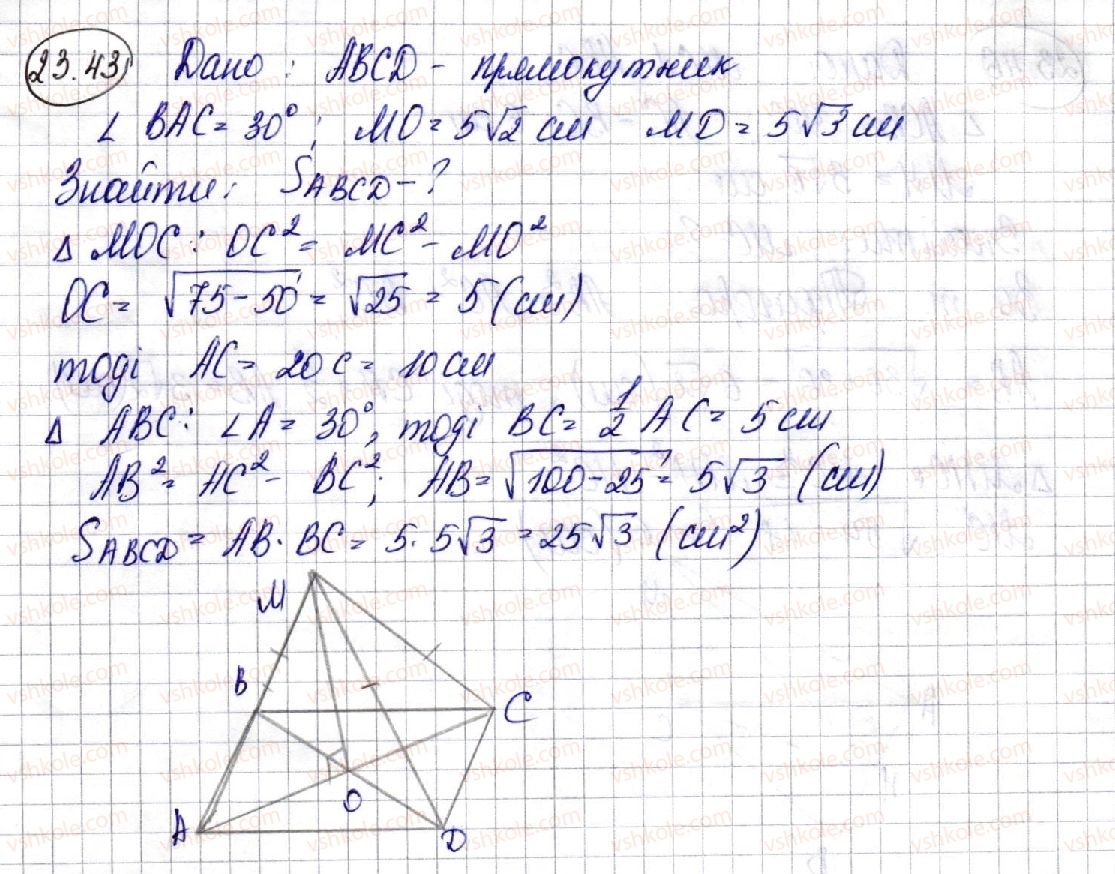 23.43 Дано : ABCD - прямокутник
∠ BAC = 30° ; MO = 5√2 см MD = 5√3 см
Знайти: S_ABCD - ?
Δ MOC : OC² = MC² - MO²
OC = √75-50 = √25 = 5 (см)
тоді AC = 2OC = 10 см
Δ ABC : ∠A = 30°, тоді BC = 1/2 AC = 5 см
AB² = AC² - BC²; AB = √100-25 = 5√3 (см)
S_ABCD = AB · BC = 5 · 5√3 = 25√3 (см²)
M
B
C
O
A
D